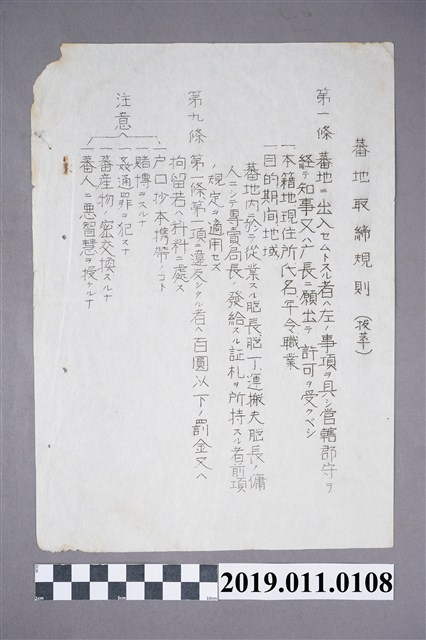 蕃地取締規則(抜萃)
第一條 蕃地ニ出入セムトスル者ハ左ノ事項ヲ具シ管轄郡守ヲ
経テ知事又ハ庁長ニ願出テ許可ヲ受クベシ
一、本籍地現住所、氏名年令職業
一、目的期間地域
蕃地内ニ於テ從業スル脳長脳丁運搬夫脳長ノ傭
人ニシテ専賣局長ノ發給スル証札ヲ所持スル者前項
ノ規定ヲ適用セズ
第九條 第一條第一項ニ違反シタル者ハ百圓以下ノ罰金又ハ
拘留若ハ科料ニ處ス
注意
一、戸口抄本携帯ノコト
一、賭博ヲスルナ
一、姦通罪ヲ犯スナ
一、蕃産物ノ密交換スルナ
一、蕃人ニ悪智慧ヲ授ケルナ
2cm 5cm 10cm
2019.011.0108